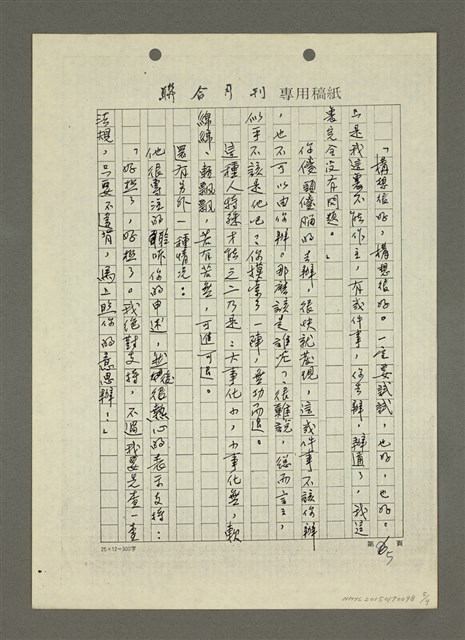 聯合月刊 專用稿紙
「構想很好，構想很好。一定要試試，也好，也好。
只是我這裏不能作主，有或件事，你去辦，辦通了，我這
裏完全沒有問題。」
你傻頭傻腦的去辦，很快就發現，這或件事不該你辦
，也不可以由你辦。那麼該是誰呢？很難說，總而言之，
似乎不該是他吧？你摸索了一陣，無功而退。
這種人特殊才能之二乃是：大事化小，小事化無，軟
綿綿、輕飄飄，若有若無，可進可退。
還有另外一種情况：
他很專注的聽你的申述，然後很熱心的表示支持：
「好極了，好極了。我絕對支持，不過我要先查一查
法規，只要不違背，馬上照你的意思辦！」
25×12＝300字
第 5 頁
NMTL20150170098 5/9